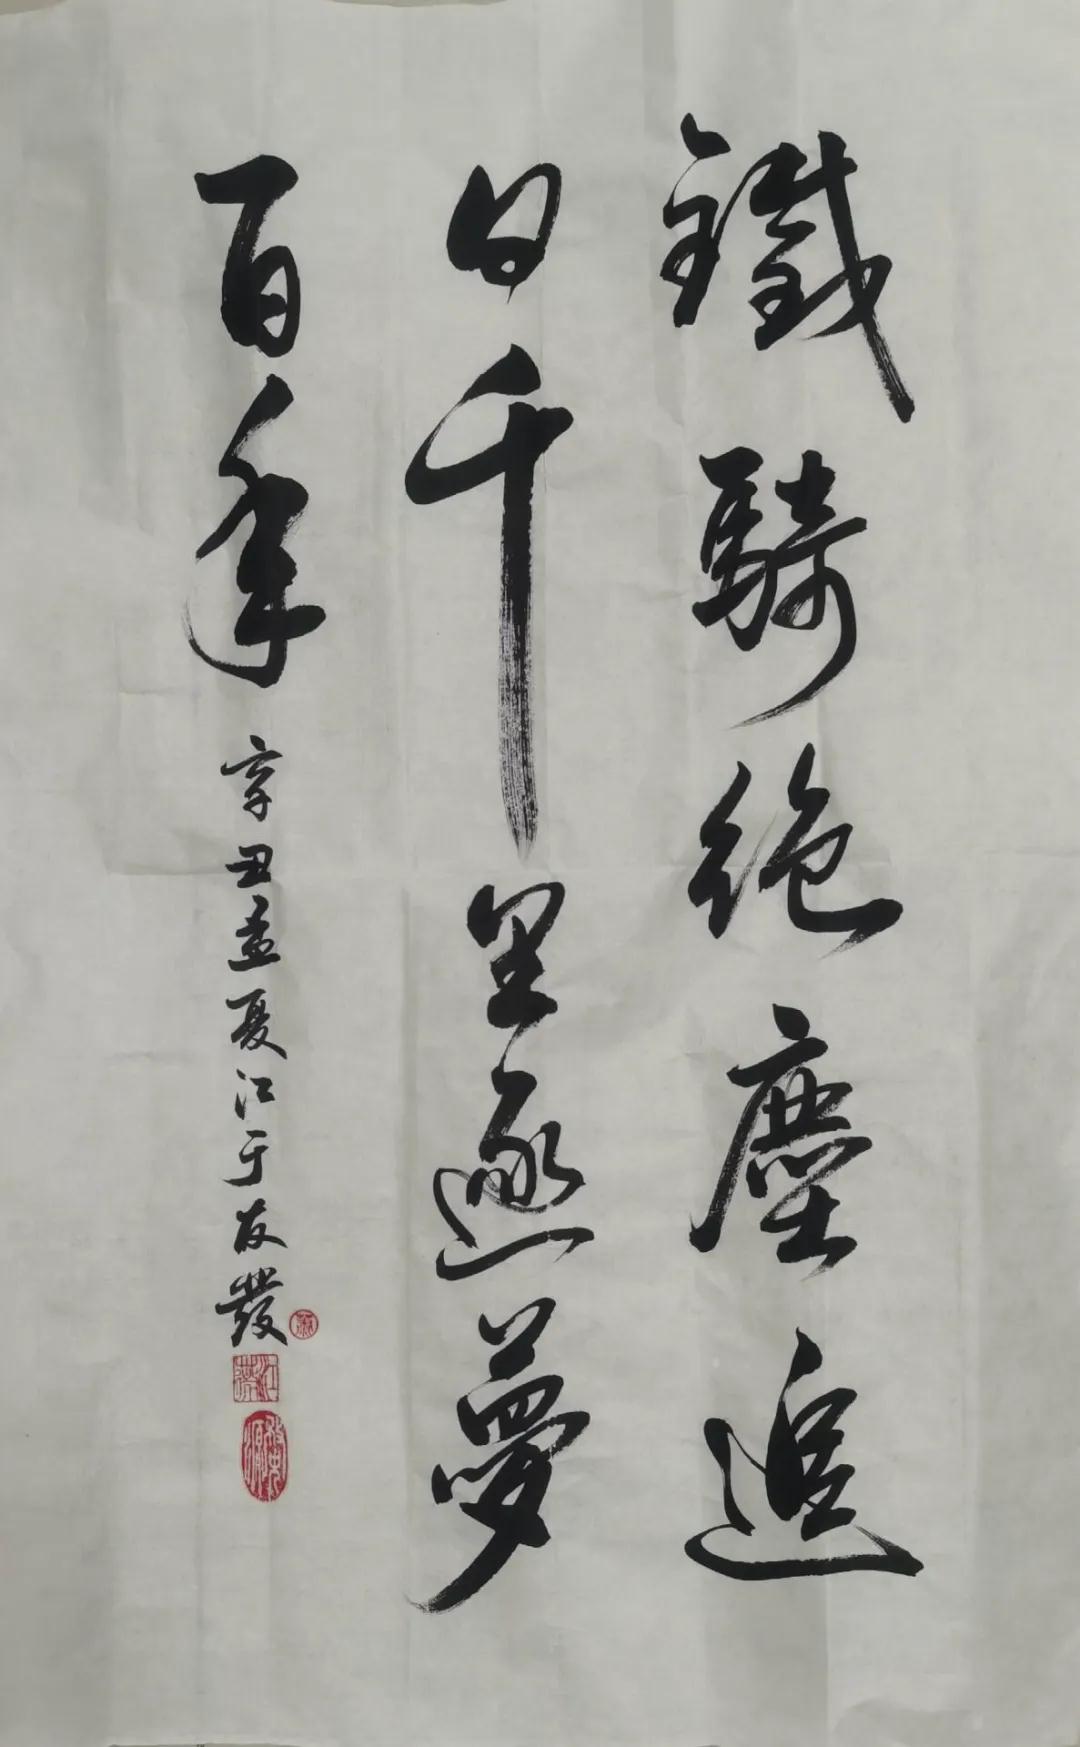 鐵騎絶塵追
日千里逐夢
百年
辛丑孟夏江于友發